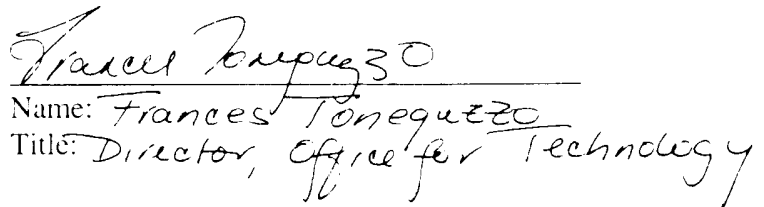 Frances Toneguzzo
Name: Frances Toneguzzo
Title: Director, Office for Technology